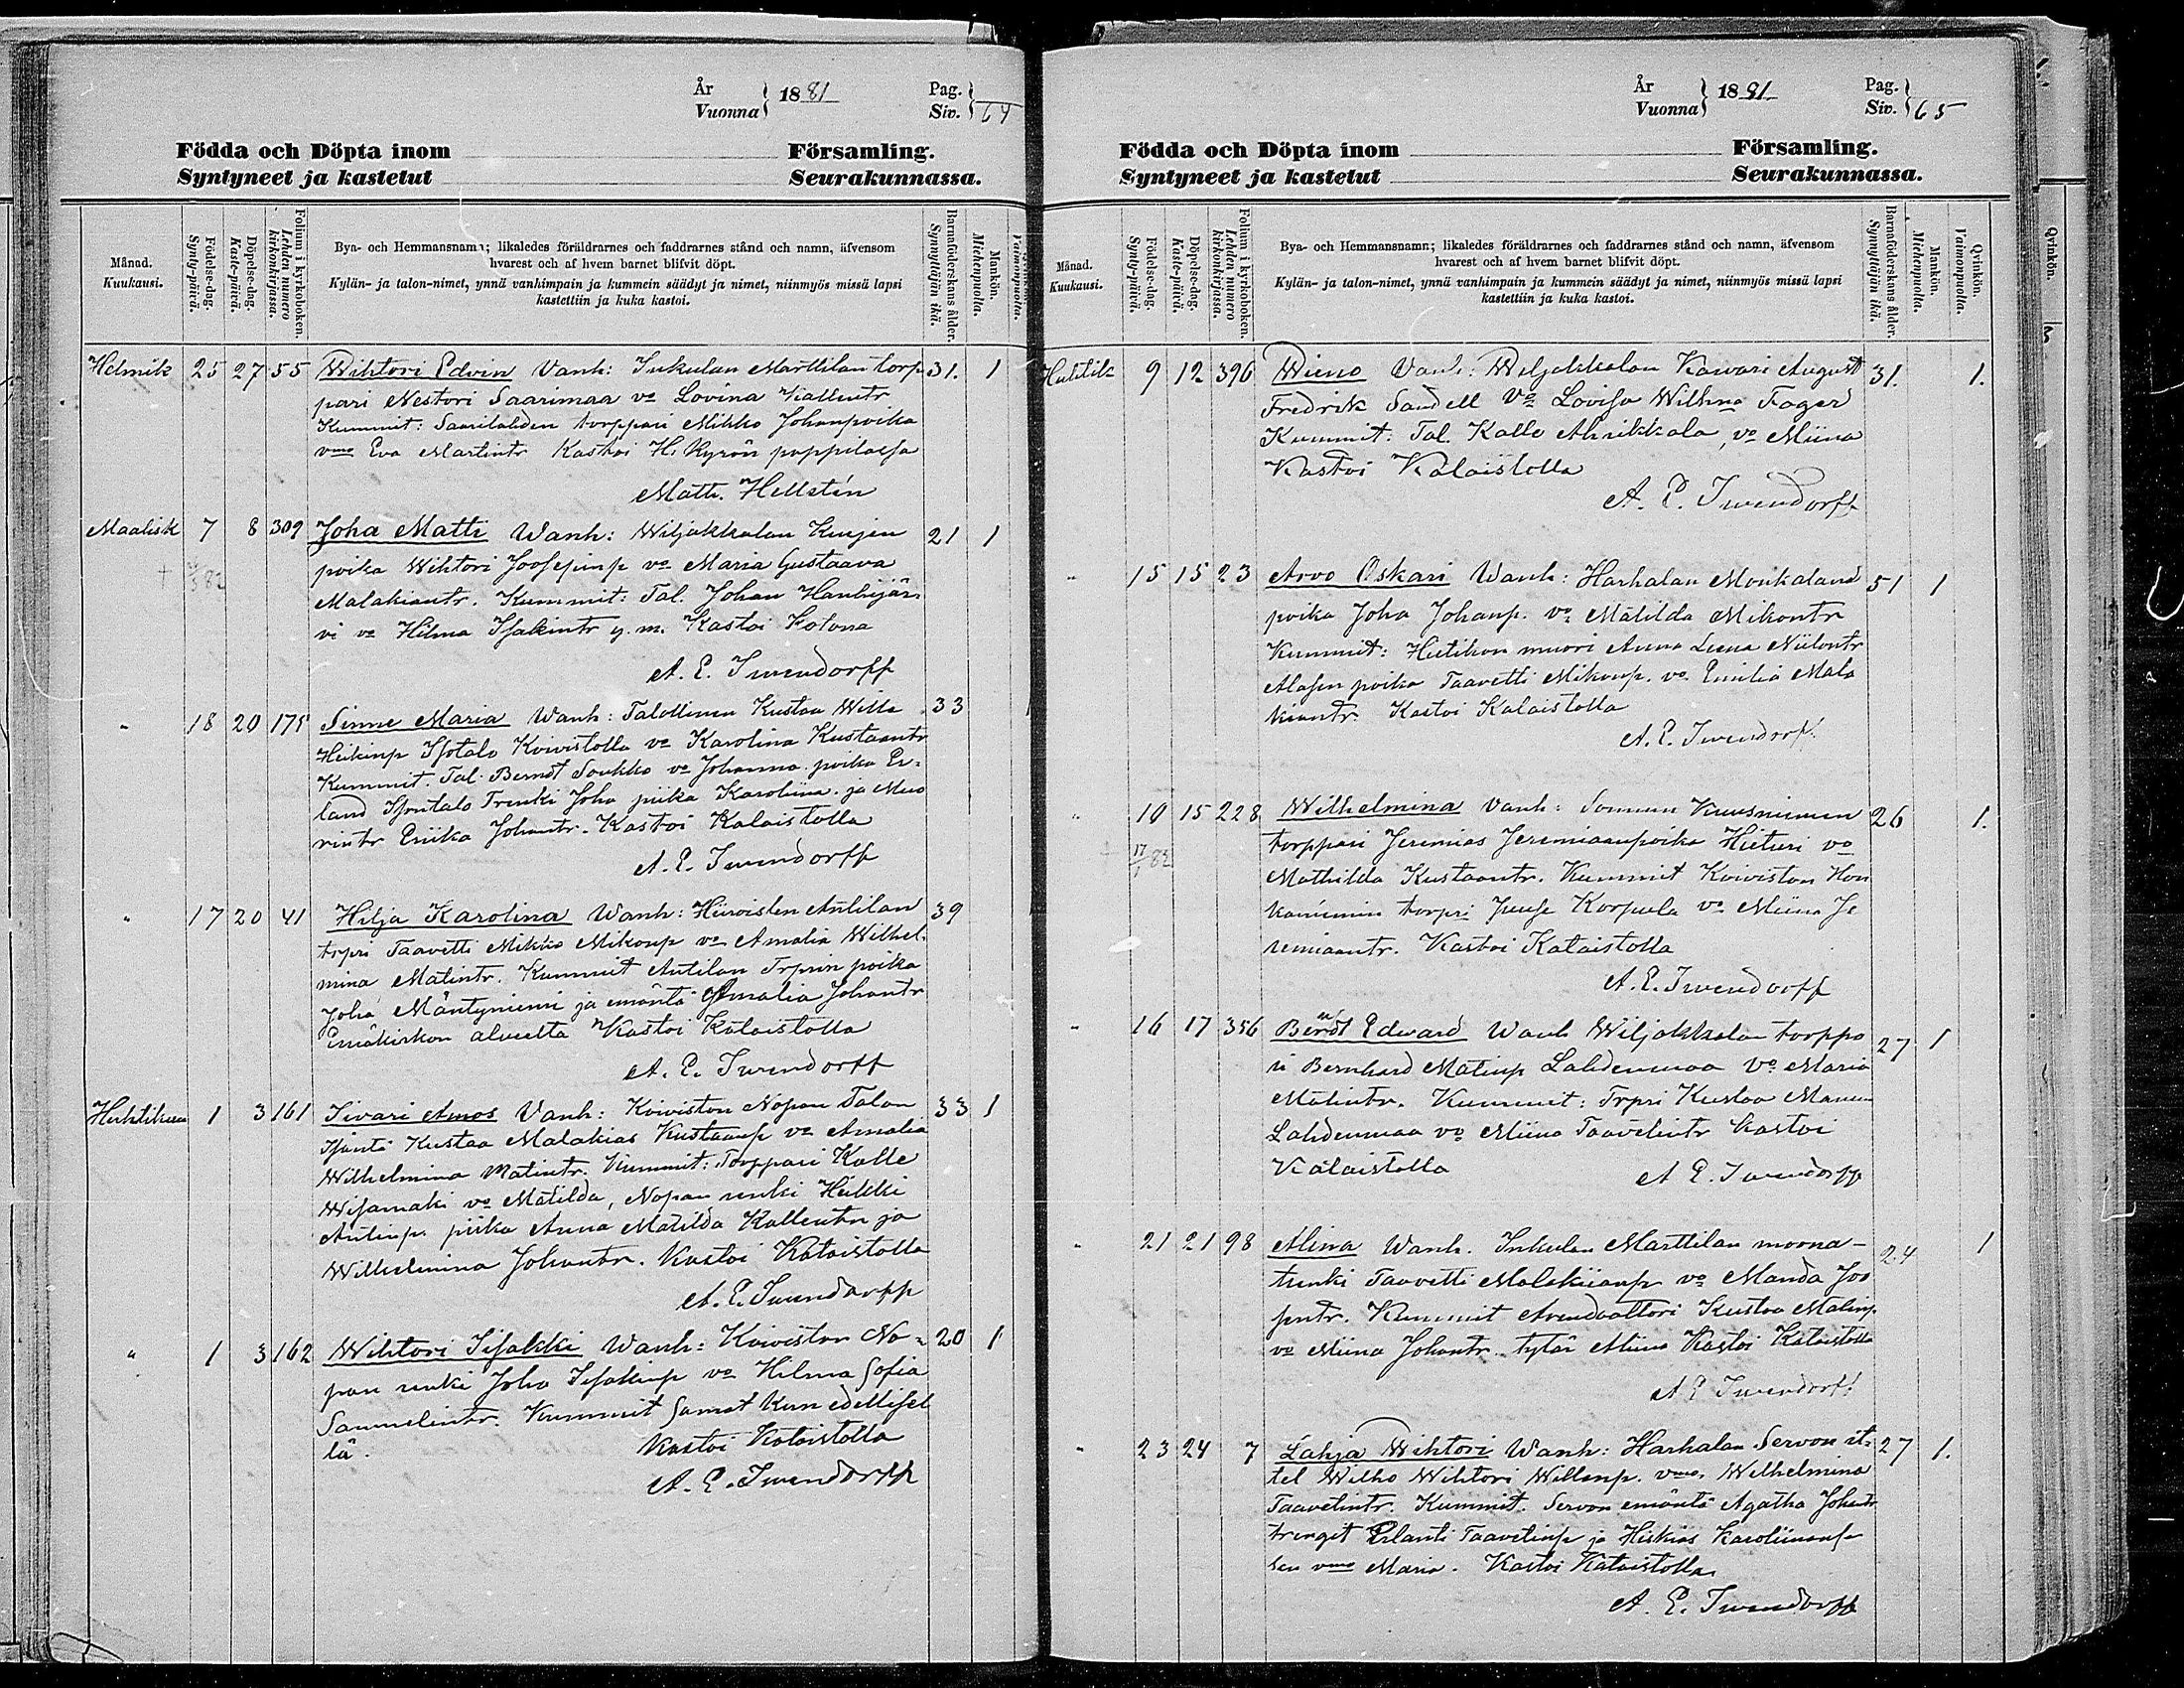 År
Vuonna } 1881
Pag.
Siv. } 64
Födda och Döpta inom Församling.
Syntyneet ja kastetut Seurakunnassa.
Månad.
Kuukausi.
Födelse-dag.
Synty-päivä.
Döpelse-dag.
Kaste-päivä.
Folium i kyrkoboken.
Lehden numero
kirkonkirjassa.
Bya- och Hemmansnamn; likaledes föräldrarnes och faddrarnes stånd och namn, äfvensom
hvarest och af hvem barnet blifvit döpt.
Kylän- ja talon-nimet, ynnä vanhimpain ja kummein säädyt ja nimet, niinmyös missä lapsi
kastettiin ja kuka kastoi.
Barnaföderskans ålder.
Synnyttäjän ikä.
Mankön.
Miehenpuolta.
Vaimonpuolta.
Helmik 25 27 55 Wihtori Edvin Vanh: Inkulan Marttilan torp 31. 1
pari Nestori Saarimaa vo Lovina Kallentr
Kummit: Saarilahden torppari Mikko Johanpoika
vmo Eva Martintr Kastoi H. Kyrön pappilassa
Math. Hellstén
Maalisk 7 8 309 Joha Matti Wanh: Wiljakkalan Kuejen 21 1
poika Wihtori Joosepinp vo Maria Gustaava
Malakiantr. Kummit: Tal. Johan Hanhijär-
vi vo Hilma Isakintr y. m. Kastoi Kotona
A. E. Iwendorff
" 18 20 175 Sinne Maria Wanh: Talollinen Kustaa Wille 33
Heikinp Isotalo Koivistolla vo Karolina Kustaantr
Kummit. Tal. Berndt Soukko vo Johanna. poika Er-
land Isontalo Trenki Joha piika Karoliina. ja Muo
rintr Eriika Johantr. Kastoi Kalaistolla
A. E. Iwendorff
" 17 20 41 Hilja Karolina Wanh: Hiiroisten Antilan 39
torpri Taavetti Mikko Mikonp vo Amalia Wilhel-
mina Matintr. Kummit Antilan Trprin poika
Joha Mäntyniemi ja emäntä Amalia Johantr
Emäkirkon alueelta Kastoi Kalaistolla
A. E. Iwendorff
Huhtikuu 1 3 161 Iivari Amos Vanh: Koiviston Nopan Talon 33 1
Isäntä Kustaa Malakias Kustaanp vo Amalia
Wilhelmina Matintr. Kummit: Torppari Kalle
Wisamäki vo Matilda, Nopan renki Heikki
Antinp. piika Anna Matilda Kallentr ja
Wilhelmina Johantr. Kastoi Kalaistolla
A. E. Iwendorff
" 1 3 162 Wihtori Iisakki Wanh: Koiviston No- 20 1
pan renki Joha Iisakinp vo Hilma Sofia
Samuelintr. Kummit samat kun edellisel
lä. Kastoi Kalaistolla
A. E. Iwendorff
År
Vuonna } 1881
Pag.
Siv. } 65
Födda och Döpta inom Församling.
Syntyneet ja kastetut Seurakunnassa.
Månad.
Kuukausi.
Födelse-dag.
Synty-päivä.
Döpelse-dag.
Kaste-päivä.
Folium i kyrkoboken.
Lehden numero
kirkonkirjassa.
Bya- och Hemmansnamn; likaledes föräldrarnes och faddrarnes stånd och namn, äfvensom
hvarest och af hvem barnet blifvit döpt.
Kylän- ja talon-nimet, ynnä vanhimpain ja kummein säädyt ja nimet, niinmyös missä lapsi
kastettiin ja kuka kastoi.
Barnaföderskans ålder.
Synnyttäjän ikä.
Mankön.
Miehenpuolta.
Qvinkön.
Vaimonpuolta.
Qvinkön.
Huhtik 9 12 396 Wieno Vanh: Wiljakkalan Kawari August 31. 1.
Fredrik Sandell Vo Lovisa Wilhna Fager
Kummit: Tal. Kalle Ahrikkala, vo Miina
Kastoi Kalaistolla
A. E. Iwendorff
" 15 15 23 Arvo Oskari Wanh: Harhalan Monkaland 51 1
poika Joha Johanp. vo Matilda Mikontr
Kummit: Hietikon muori Anna Leena Niilontr
Alasen poika Taavetti Mikonp. vo. Emilia Mala
kiantr. Kastoi Kalaistolla
A. E. Iwendorf.
" 10 15 228 Wilhelmina Vanh: Sommun Kuusniemen 26 1.
torppari Jeremias Jeremiaanpoika Hieturi vo
Mathilda Kustaantr. Kummit Koiviston Hon
kaniemin torpri Juuse Korpula vo Miina Je
remiaantr. Kastoi Kalaistolla
A. E. Iwendorff
" 16 17 356 Berndt Edward Wanh Wiljakkalan torppa 27 1
ri Bernhard Matinp Lahdenmaa Vo Maria
Matintr. Kummit: Trpri Kustaa Manu
Lahdenmaa vo Miina Taavetintr Kastoi
Kalaistolla A E. Iwendorff
" 21 21 98 Alina Wanh. Inkulan Marttilan moona- 24 1
trenki Taavetti Malakiianp vo Manda Joo
pntr. Kummit Arendaattori Kustaa Matinp.
vo Miina Johantr. tytär Miina Kastoi Kalaistolla
A E Iwendorf.
" 23 24 7 Lahja Wihtori Wanh: Harhalan Servon it- 27 1.
tel Wilho Wihtori Willenp. vmo. Wilhelmina
Taavetintr. Kummit. Servon emäntä Agatha Johantr
trengit Erlanti Taavetinp ja Hiskias Karoliinanp
sen vmo Maria. Kastoi Kalaistolla.
A. E. Iwendorff